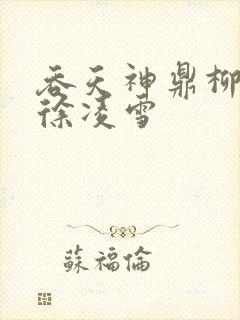 吞天神鼎柳
徐凌雪
蘇福倫